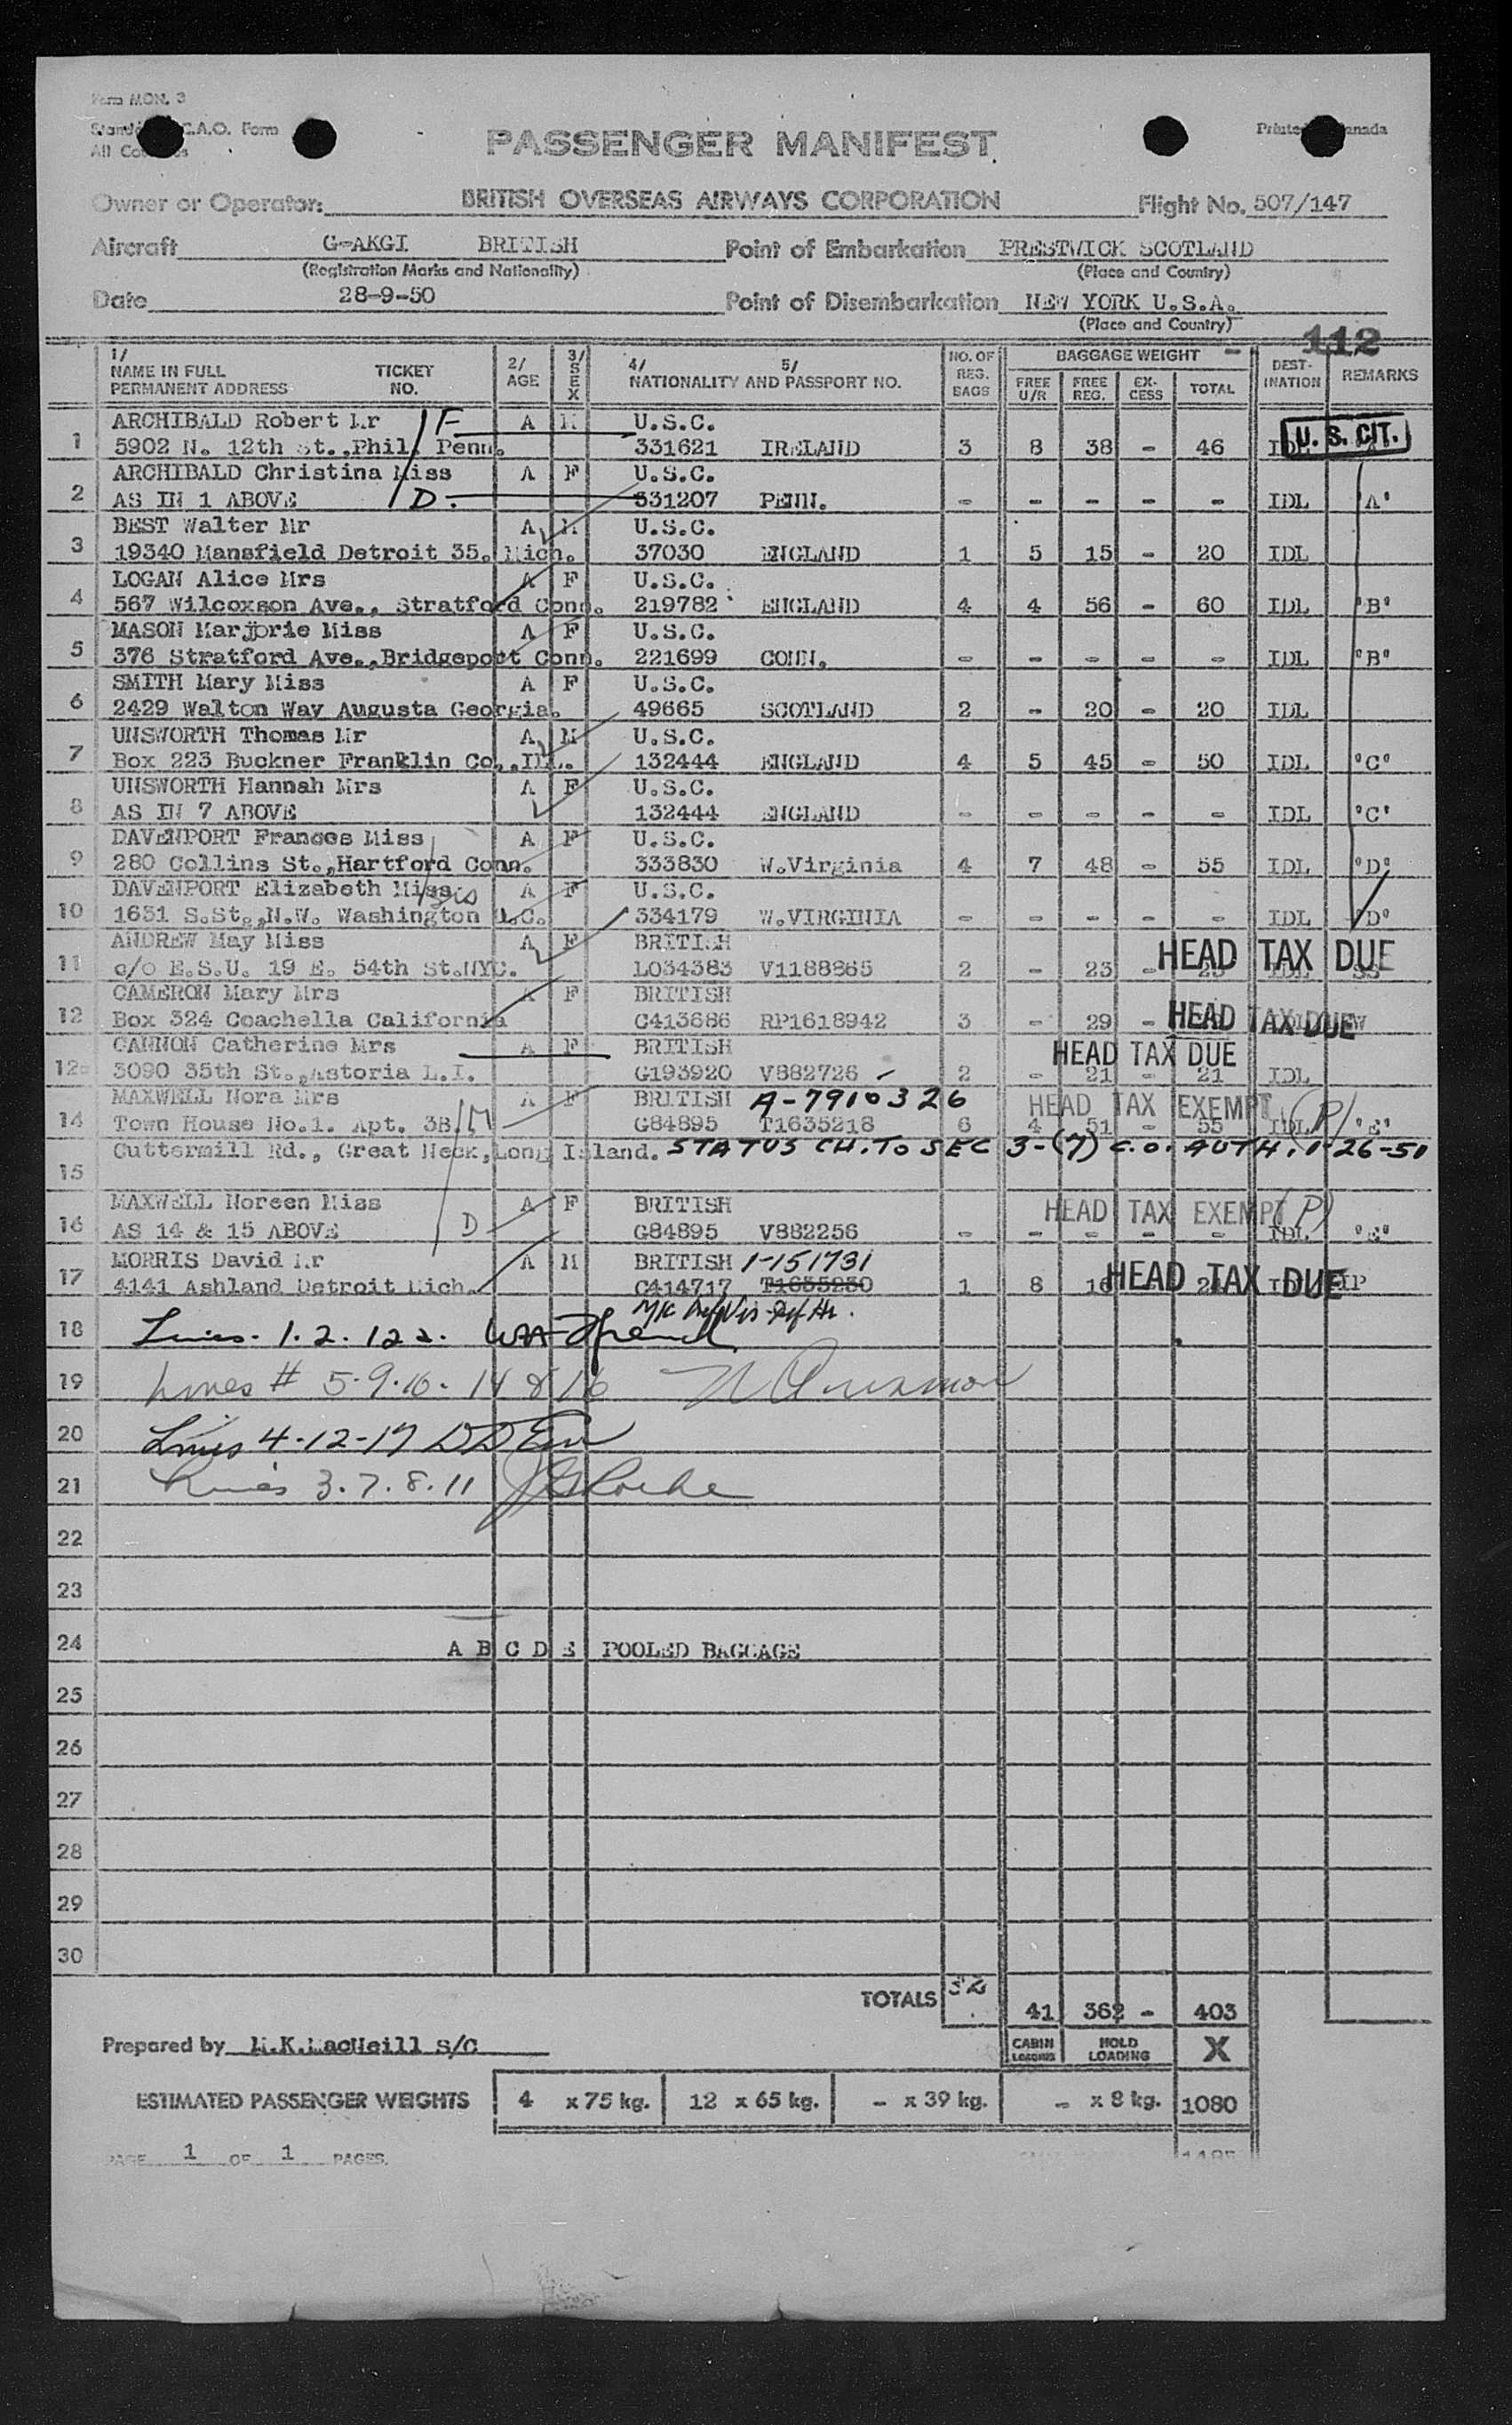 Form MON. 3
C.A.O. Form
All
Printed Canada
PASSENGER MANIFEST
Owner or Operator: BRITISH OVERSEAS AIRWAYS CORPORATION Flight No. 507/147
Aircraft G-AKGI BRITISH Point of Embarkation PRESTWICK SCOTLAND
(Registration Marks and Nationality) (Place and Country)
Date 28-9-50 Point of Disembarkation NEW YORK U.S.A.
(Place and Country)
112
1/ NAME IN FULL PERMANENT ADDRESS TICKET NO. 2/ AGE 3/ SEX 4/ 5/ NATIONALITY AND PASSPORT NO. NO. OF REG. BAGS BAGGAGE WEIGHT - FREE U/R FREE REG. EX-CESS TOTAL DEST-INATION REMARKS
ARCHIBALD Robert Mr F A M U.S.C. U. S. CIT.
1 5902 N. 12th St.,Phil. Penn. 331621 IRELAND 3 8 38 - 46 IDL "A"
ARCHIBALD Christina Miss A F U.S.C.
2 AS IN 1 ABOVE D. 331207 PENN. - - - - - IDL "A"
BEST Walter Mr A M U.S.C.
3 19340 Mansfield Detroit 35. Mich. 37030 ENGLAND 1 5 15 - 20 IDL
LOGAN Alice Mrs A F U.S.C.
4 567 Wilcoxson Ave., Stratford Conn. 219782 ENGLAND 4 4 56 - 60 IDL "B"
MASON Marjorie Miss A F U.S.C.
5 376 Stratford Ave.,Bridgeport Conn. 221699 CONN. - - - - - IDL "B"
SMITH Mary Miss A F U.S.C.
6 2429 Walton Way Augusta Georgia. 49665 SCOTLAND 2 - 20 - 20 IDL
UNSWORTH Thomas Mr A M U.S.C.
7 Box 223 Buckner Franklin Co.,Ill. 132444 ENGLAND 4 5 45 - 50 IDL "C"
UNSWORTH Hannah Mrs A F U.S.C.
8 AS IN 7 ABOVE 132444 ENGLAND - - - - - IDL "C"
DAVENPORT Frances Miss A F U.S.C.
9 280 Collins St.,Hartford Conn. 333830 W.Virginia 4 7 48 - 55 IDL "D"
DAVENPORT Elizabeth Miss A F U.S.C.
10 1631 S.St.,N.W. Washington D.C. 334179 W.VIRGINIA - - - - - IDL "D"
ANDREW May Miss A F BRITISH HEAD TAX DUE
11 c/o E.S.U. 19 E. 54th St.NYC. L034383 V1188865 2 - 23 - 23 IDL
CAMERON Mary Mrs A F BRITISH HEAD TAX DUE
12 Box 324 Coachella California C413686 RP1618942 3 - 29 -
CANNON Catherine Mrs A F BRITISH HEAD TAX DUE
12a 3090 35th St.,Astoria L.I. G193920 V882726 2 - 21 - 21 IDL
MAXWELL Nora Mrs M A F BRITISH A-7910326 HEAD TAX EXEMPT (P)
14 Town House No.1. Apt. 3B. G84895 T1635218 6 4 51 - 55 IDL "E"
Cuttermill Rd., Great Neck,Long Island. STATUS CH. TO SEC 3-(7) C.O. AUTH. 1-26-51
15
MAXWELL Noreen Miss A F BRITISH HEAD TAX EXEMPT (P)
16 AS 14 & 15 ABOVE D G84895 V882256 - - - - - IDL "E"
MORRIS David Mr A M BRITISH 1-151731 HEAD TAX DUE
17 4141 Ashland Detroit Mich. C414717 T1635230 1 8 16 IDL
18 Lines. 1. 2. 12a.
19 Lines # 5-9-10- 14 & 16
20 Lines 4-12-17
21 Lines 3. 7. 8. 11 J G Roche
22
23
24 A B C D E POOLED BAGGAGE
25
26
27
28
29
30
TOTALS 41 362 - 403
Prepared by M.K.MacNeill S/C CABIN LOADING HOLD LOADING X
ESTIMATED PASSENGER WEIGHTS 4 x 75 kg. 12 x 65 kg. - x 39 kg. - x 8 kg. 1080
PAGE 1 OF 1 PAGES.